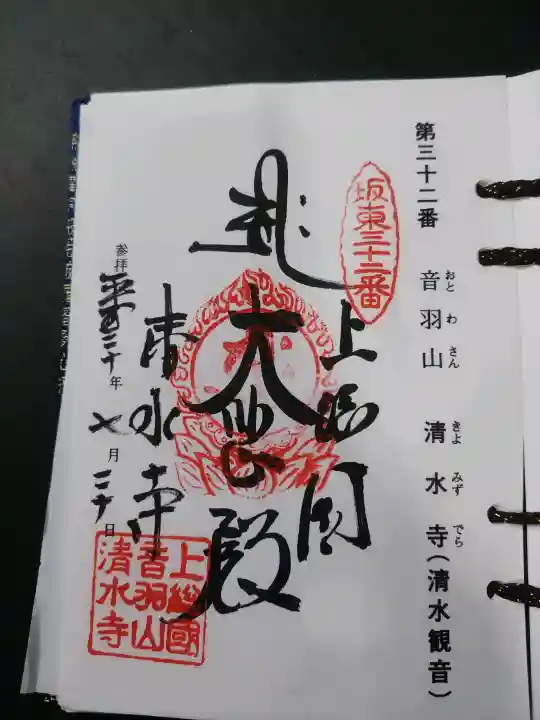 第三十二番 音羽山 清水寺(清水観音)
おと わ さん きよ みず でら
坂東三十二番
上総国
大悲殿
清水寺
参拝 平成三十年 七月 三十日
上総國
音羽山
清水寺